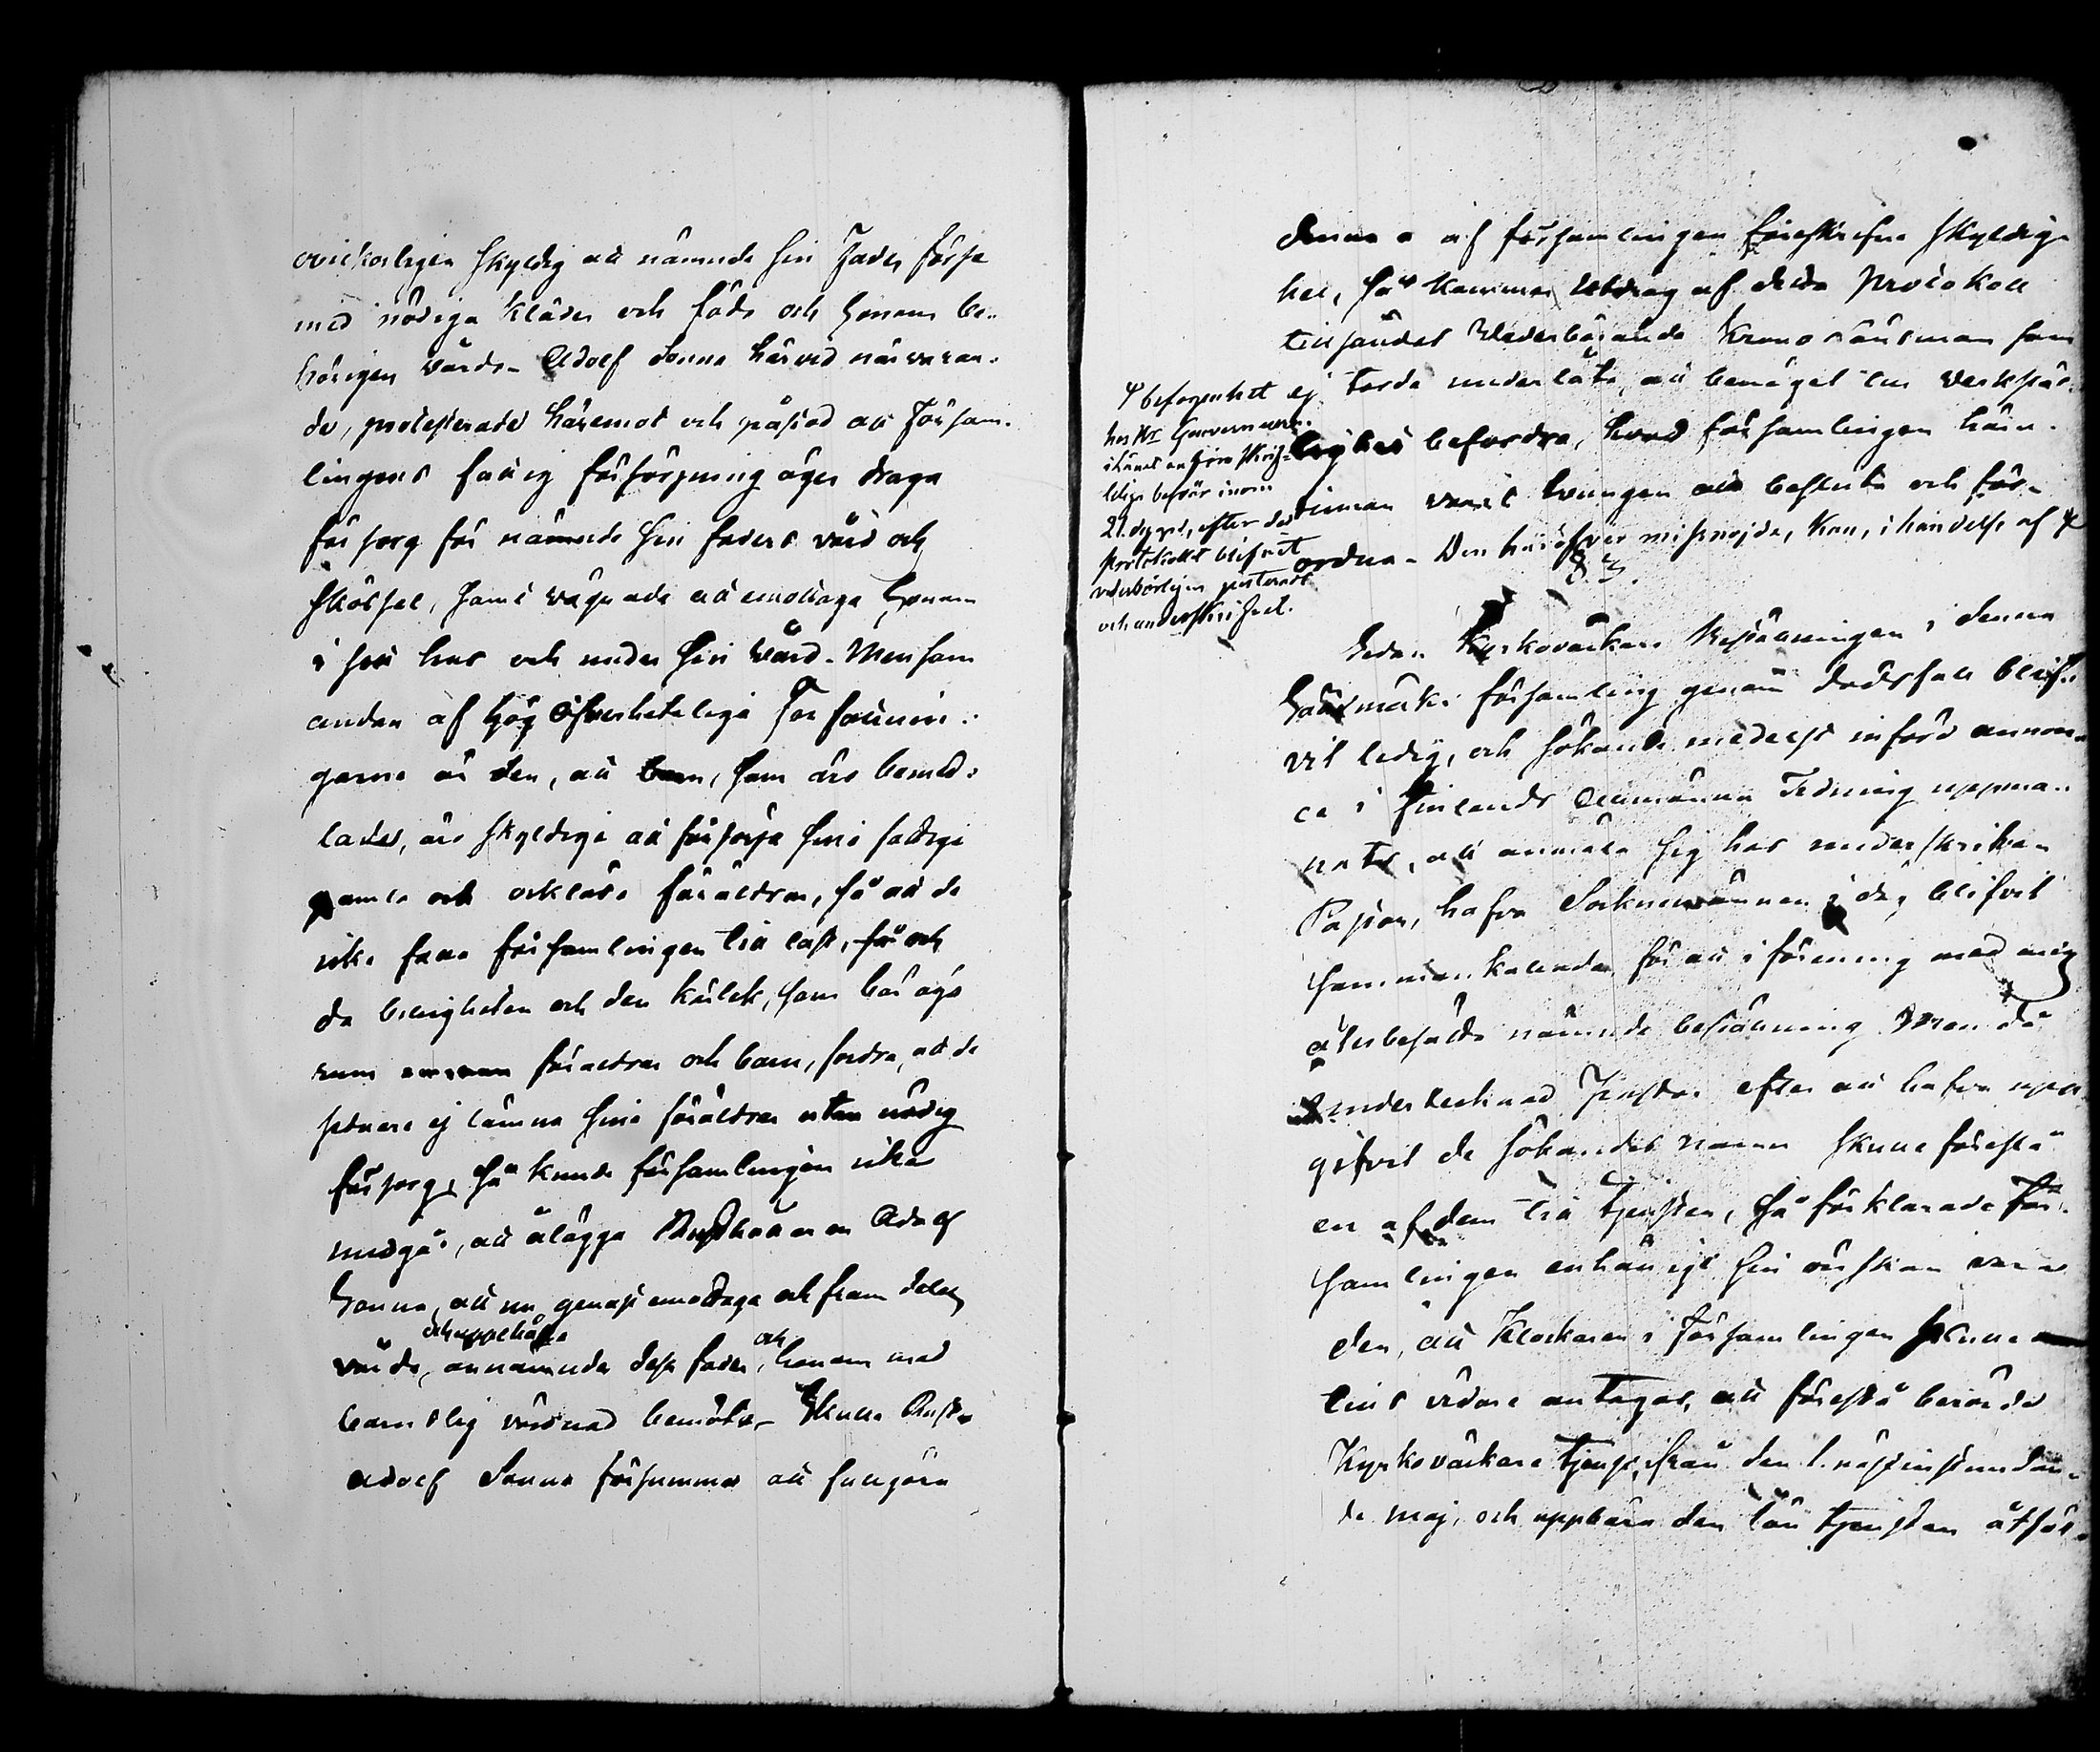 ovilkorligen skyldig att nämnde sin Fader förse
med nödiga kläder och föda och honom be-
hörigen vårda. Adolf Sonna härvid närvaran-
de, protesterade häremot och påstod att Försam-
lingens fattig försörjning äger draga
försorg för nämnde sin faders vård och
skötsel, samt vägrade att emottaga honom
i sitt hus och under sin vård. Men som
andan af hög Öfverhetliga Författnin-
garne är den, att barn, som äro bemed-
lade, äro skyldiga att försörja sina fattiga
gamla och orklösa föräldrar, så att de
icke falla församlingen till last, så och
då billigheten och den kärlek, som bör äga
rum emellan föräldrar och barn, fordra, att de
sednare ej lämna sina föräldrar utan nödig
försorg, så kunde församlingen icke
medgå, att ålägga Rusthållaren Adolf
Sonna, att nu genast emottaga och framdeles
och uppehålla
vårda, omnämnde dess fader, och honom med
barnslig vårdnad bemöta. Skulle Rusth.
Adolf Sonna försumma att fullgöra
denna af församlingen föreskrifne skyldig-
het, så kommer Utdrag af detta Protokoll
tillsändas Vederbörande Kronolänsman som
ej torde underlåta, att benäget till verkstäl-
lighet befordra, hvad församlingen härut-
innan varit tvungen att besluta och för-
ordna. Den häröfver missnöjde, kan, i händelse af
befogenhet
hos Hr Gouverneuren
i Länet anföra skrift-
lige besvär inom
21 dygn, efter det
Protokollet blifvit
vederbörligen justeradt
och underskrifvet.
§ 3.
Sedan Kyrkoväktare beställningen i denna
Sastmola församling genom dödsfall blif-
vit ledig, och sökande medelst införd annon-
ce i Finlands Allmänna Tidning uppma-
nats, att anmäla sig hos underskrifven
Pastor, hafva Sockenmännen i dag blifvit
sammankallade för att i förening med mig
återbesätta nämnde beställning. Men då
undertecknad Pastor efter att hafva upp-
gifvit de sökandes namn skulle föreslå
en af dem till tjensten, så förklarade För-
samlingen enhälligt sin önskan vara
den, att Klockaren i Församlingen skulle
tills vidare antagas, att förestå berörde
Kyrkoväktare tjenst, från den 1. nästinstundan-
de Maj, och uppbära den lön tjensten åtföl-